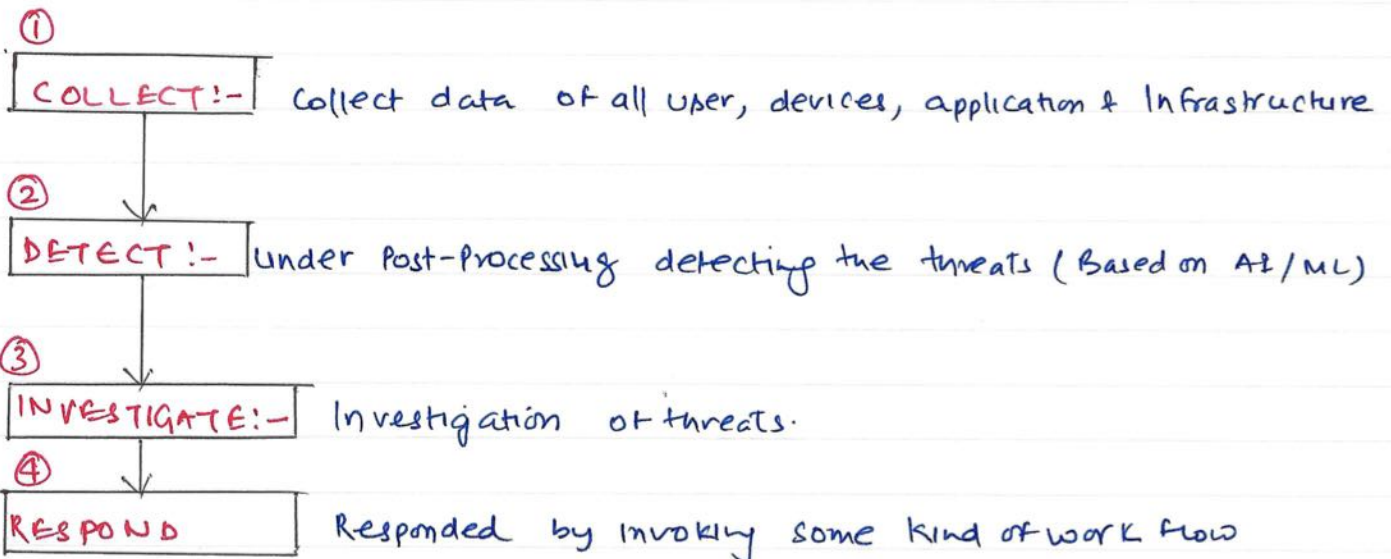 ①
COLLECT:- Collect data of all user, devices, application & Infrastructure
②
DETECT:- Under Post-Processing detecting the threats (Based on AI/ML)
③
INVESTIGATE:- Investigation of threats.
④
RESPOND Responded by invoking some kind of work flow